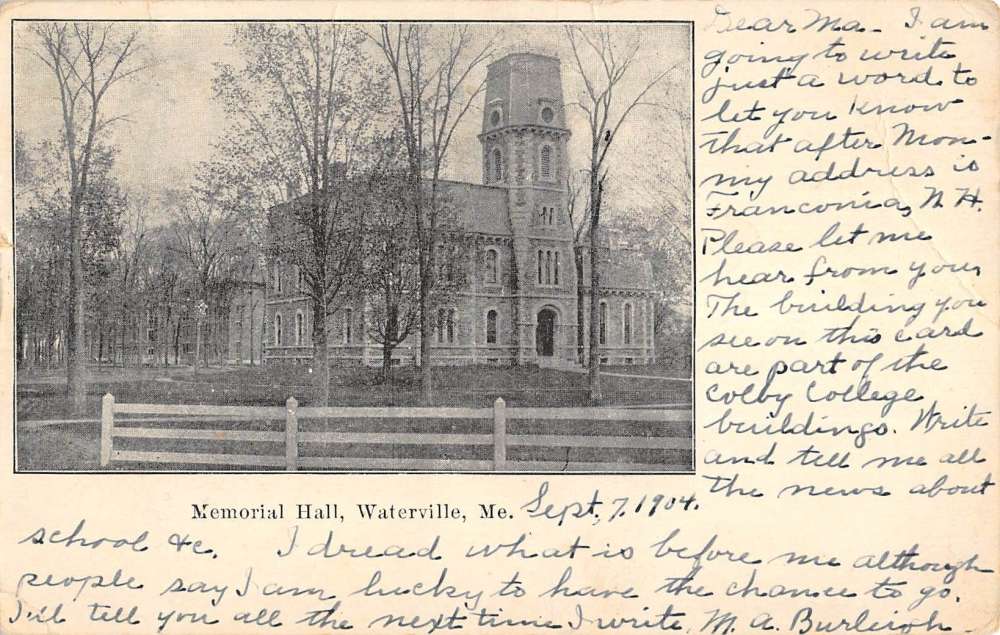 Dear Ma - I am
going to write
just a word to
let you know
that after Mon-
my address is
Franconia, N. H.
Please let me
hear from you,
The building you
see on this card
are part of the
Colby College
buildings. Write
and tell me all
the news about
Memorial Hall, Waterville, Me. Sept. 7. 1904.
school &c. I dread what is before me although
people say I am lucky to have the chance to go.
I'll tell you all the next time I write, M. A. Burleigh